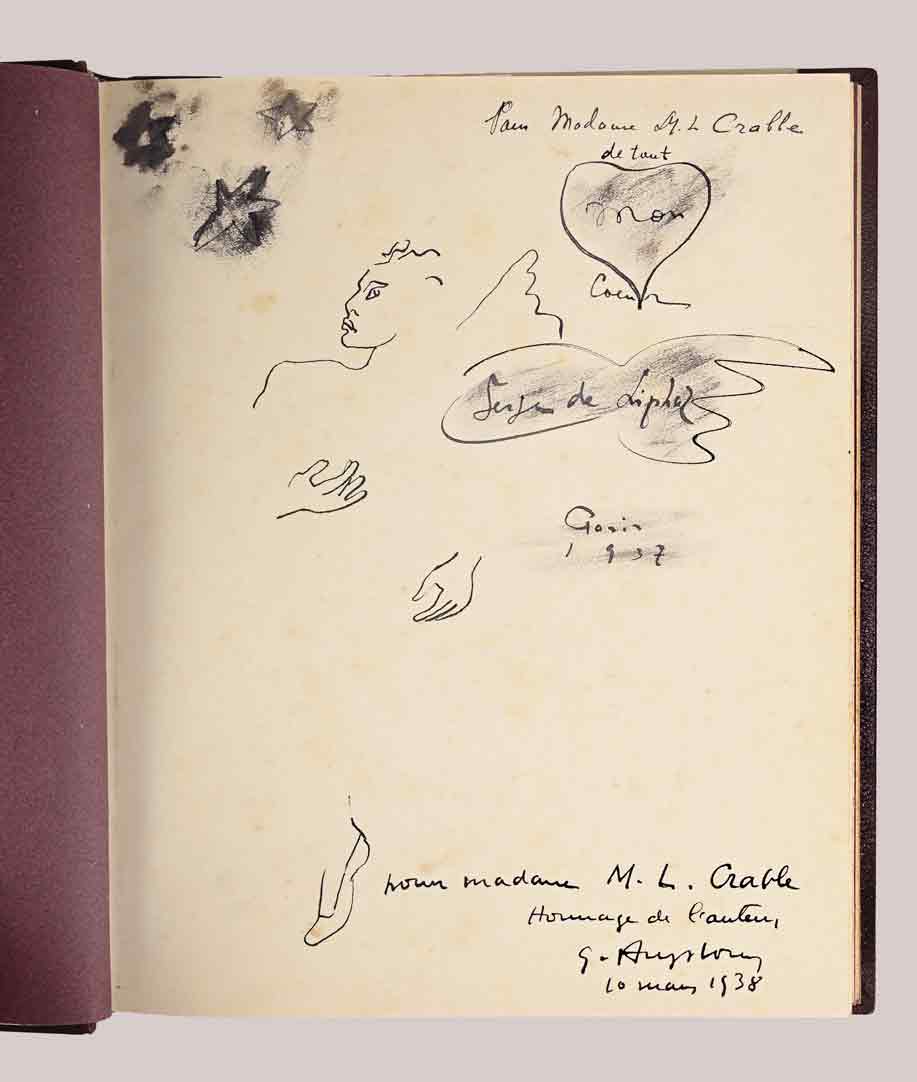 Pour Madame M. L Crabbe
de tout
mon
Coeur
Serge de Liphar
Paris
1937
pour madame M. L. Crabbe
Hommage de l'auteur,
G.
10 mars 1938